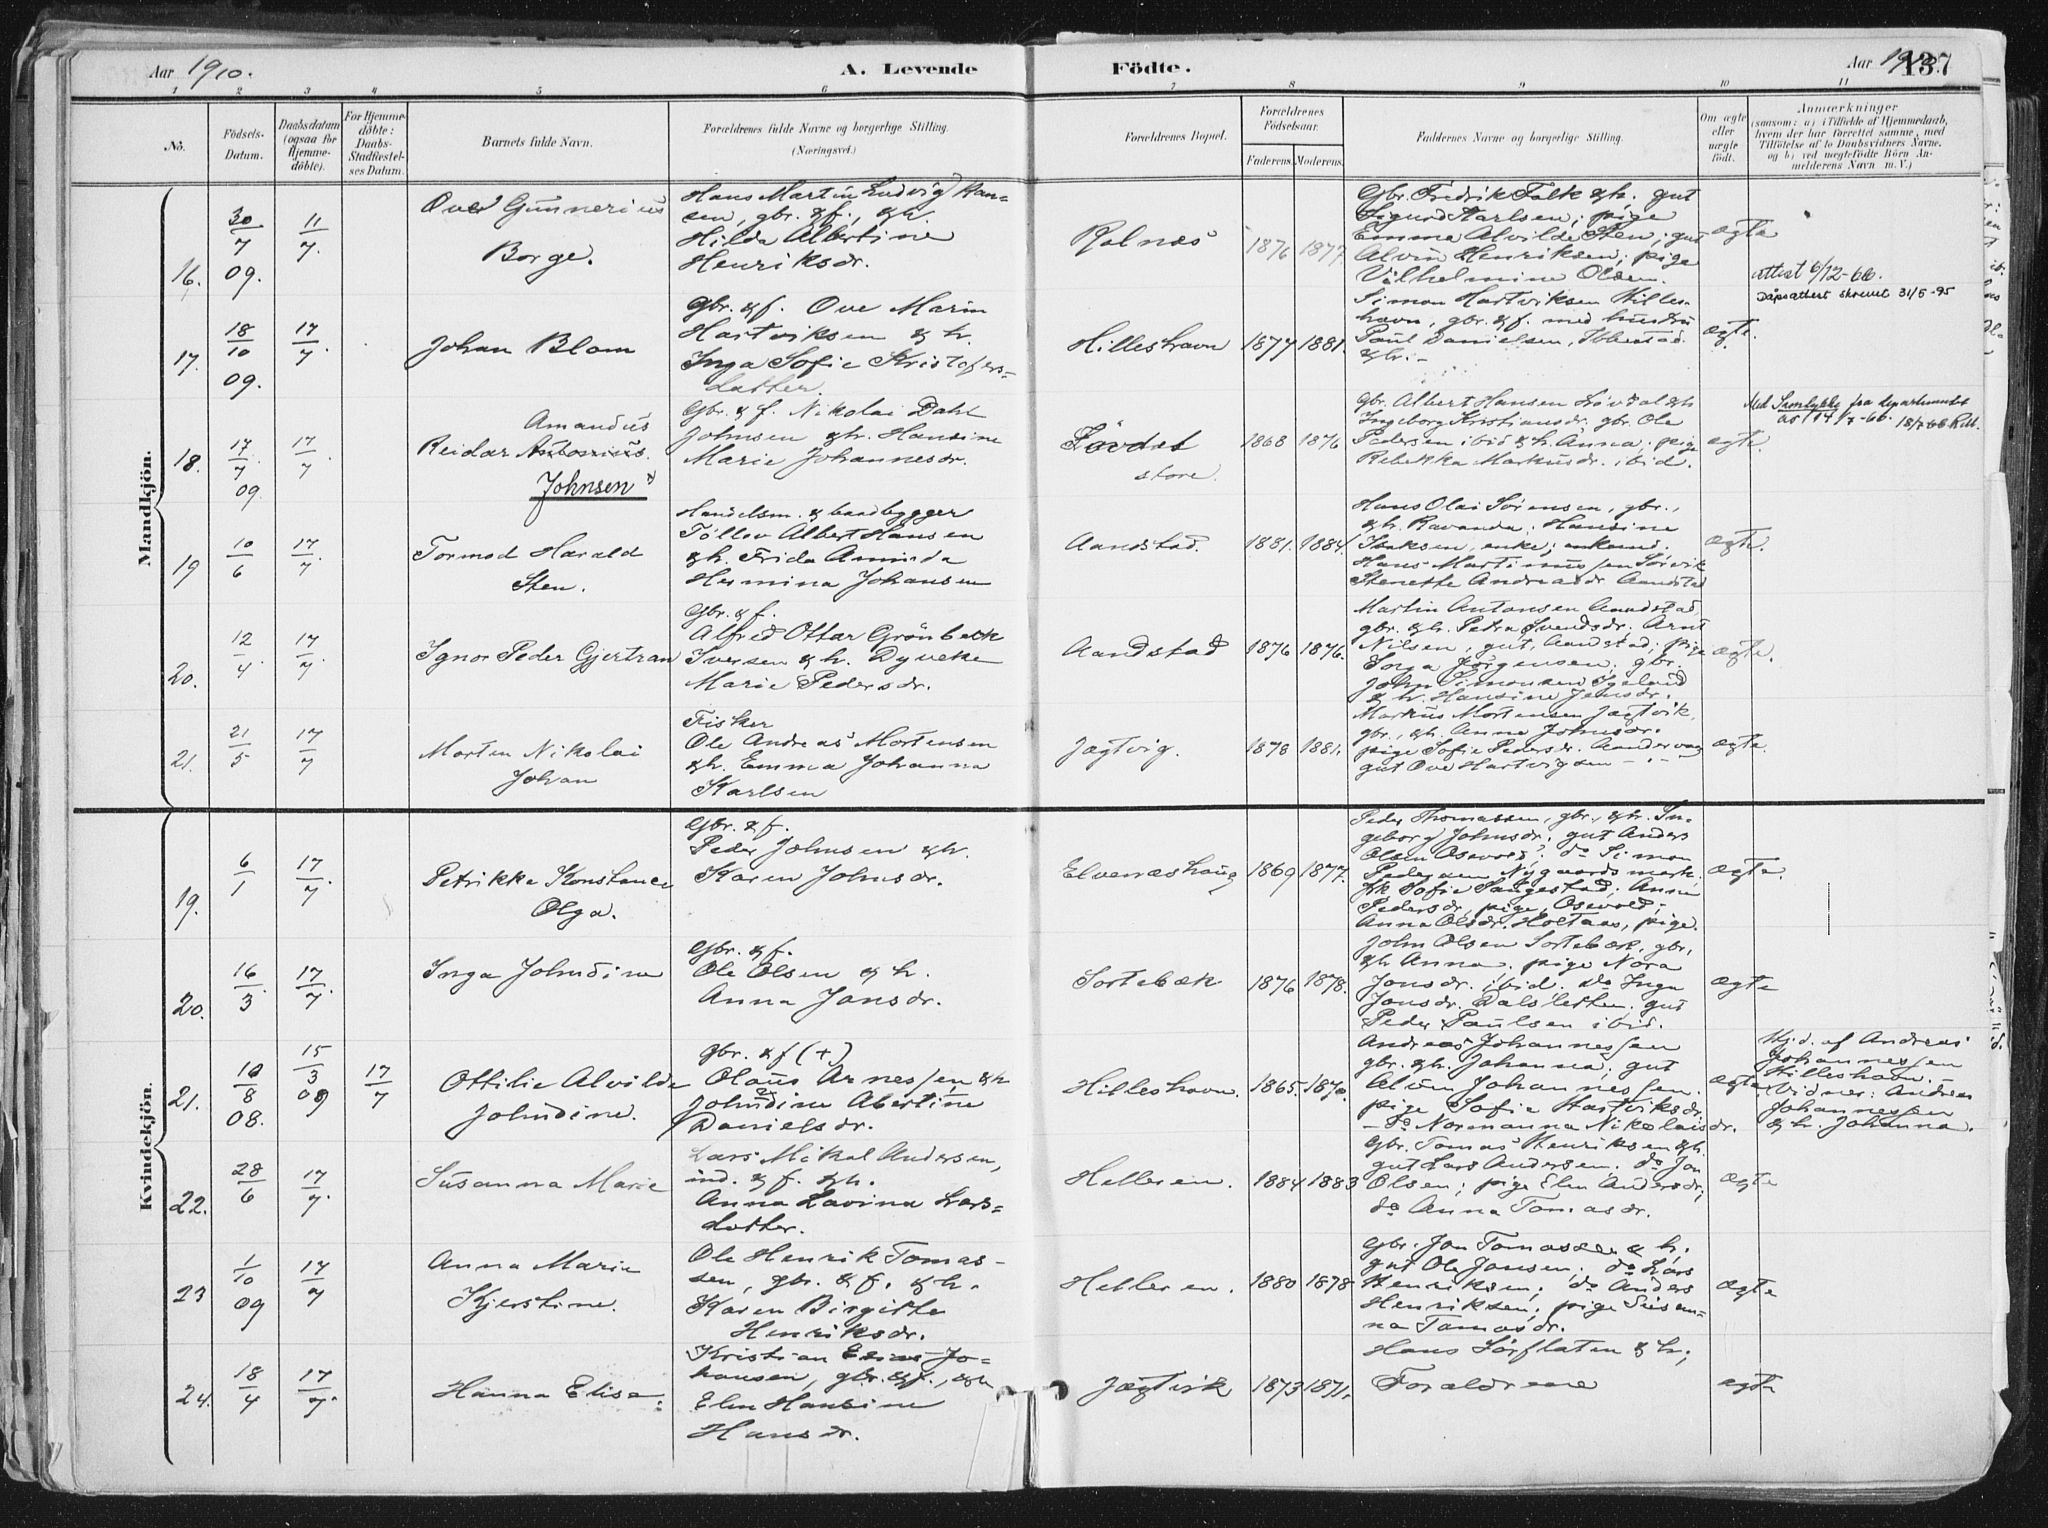 Aar 1910.
A. Levende
Födte.
Aar 1910.
137
1 2 3 4 5 6 7 8 9 10 11
No.
Födsels-
Datum.
Daabsdatum
(ogsaa for
Hjemme-
döbte).
For Hjemme-
döbte:
Daabs-
Stadfæstel-
ses Datum.
Barnets fulde Navn.
Forældrenes fulde Navne og borgerlige Stilling.
(Næringsvei.)
Forældrenes Bopæl.
Forældrenes
Födselsaar.
Faderens.
Moderens.
Faddernes Navne og borgerlige Stilling.
Om ægte
eller
uægte
födt.
Anmærkninger
(saasom: a) i Tilfælde af Hjemmedaab,
hvem der har forrettet samme, med
Tilföielse af to Daabsvidners Navne,
og b) ved uægtefödte Börn An-
melderens Navn m. V.)
Mandkjön.
16.
30/7 09.
11/7.
Ove Gunnerius
Borge.
Hans Martin Ludvig Han-
sen, gbr. & f., & h.
Hilda Albertine
Henriksdr.
Rolnæs
1876 1877.
Gbr. Fredrik Falk & h. gut
Sigurd Karlsen; pige
Emma Alvilde Sten; gut
Alvin Henriksen; pige
Vilhelmine Olsen.
ægte
attest 6/12-66.
Dåpsattest skrevet 31/5-95
17.
18/10 09.
17/7.
Johan Blom
Gbr. & f. Ove Marin
Hartviksen & h.
Inga Sofie Kristofers-
datter.
Hilleshavn
1877 1881.
Simon Hartviksen Hilles-
havn, gbr. & f. med hustru
Paul Danielsen, Ibbestad
& h. -
ægte.
18.
17/7 09.
17/7
Amandus
Reidar Antonius.
Johnsen
Gbr. & f. Nikolai Dahl
Johnsen & h. Hansine
Marie Johannesdr.
Lövdal
store.
1868 1876
Gbr. Albert Hansen Lövdal & h
Ingeborg Kristiansdr; gbr. Ole
Pedersen ibid & h. Anna; pige
Rebekka Markusdr. ibid.
ægte.
Med Samtykke fra departementet
as 14/7-66. 18/7-66
19
10/6
17/7.
Tormod Harald
Sten.
Handelsm. & baadbygger
Töllev Albert Hansen
& h. Frida Aminda
Hermina Johansen
Aandstad.
1881. 1884.
Hans Olai Sörensen, gbr.,
& h. Ravanda; Hansine
Isaksen, enke;
Hans Martinussen Sörvik
Stenette Andreasdr Aandstad
ægte.
20.
12/4.
17/7
Ignor Peder Gjertran
Gbr. & f.
Alfred Ottar Grönbeck
Iversen & h. Dyveke
Marie Pedersdr.
Aandstad
1876 1876.
Martin Antonsen Aandstad,
gbr. & h. Petra Svendsdr. Arnt
Nilsen, gut, Aandstad; pige
Inga Jörgensen; gbr.
John Simonsen Igeland
& h. Hansine Jensdr.
ægte.
21.
21/5
17/7
Morten Nikolai
Johan
Fisker
Ole Andreas Mortensen
& h. Emma Johanna
Karlsen
Jægtvig.
1878 1881.
Markus Mortensen Jægtvik,
gbr., & h. Anne Johnsdr.
pige Sofie Pedersdr. Aandervag
gut Ove Hartvigsen - " -
ægte.
Kvindekjön.
19.
6/1
17/7.
Petrikke Konstance
Olga.
Gbr. & f.
Peder Johnsen & h.
Karen Johnsdr.
Elvenæshaug
1869 1877.
Peder Thomassen, gbr., & h. In-
geborg Johnsdr; gut Anders
Olsen Osevold; do Simon
Pedersen Nygaardsmark.
frk Sofie Sangestad; Anne
Pedersdr, pige, Osevold;
Anna Olsdr. Holtaas, pige.
ægte.
20.
16/3.
17/7.
Inga Johndine
Gbr. & f.
Ole Olsen & h.
Anna Jonsdr.
Sortebæk
1876 1878.
John Olsen Sortebæk, gbr,
& h Anna. pige Nora
Jonsdr. ibid. do Inga
Jonsdr. Dalsletten. gut
Peder Paulsen ibid.
ægte
21.
10/8 08.
15/3 09
17/7
Ottilie Alvilde
Johndine.
gbr. & f (+)
Olaus Arnessen & h
Johndine Abertine
Danielsdr.
Hilleshavn.
1865. 1870.
Andreas Johannessen
gbr. & h. Johanna. gut
Alvin Johannessen.
pige Sofie Hartviksdr.
- do Normanna Nikolaisdr.
ægte.
Hjd. af Andreas
Johannessen
Hilleshavn.
Vidner: Andreas
Johannessen
& h. Johanna.
22.
28/6
17/7.
Susanna Marie
Lars Mikal Andersen,
ind. & f. & h.
Anna Lavina Lars-
datter.
Helleren.
1884 1883
Gbr. Tomas Henriksen & h.
gut Lars Andersen. do Jon
Olsen; pige Elen Andersdr;
do Anna Tomasdr.
ægte
23
1/10 09
17/7
Anna Marie
Kjerstine.
Ole Henrik Tomas-
sen, gbr. & f. & h.
Karen Birgitte
Henriksdr.
Helleren.
1880 1878
Gbr. Jon Tomassen & h;
gut Ole Jansen. do Lars
Henriksen; do Anders
Henriksen; pige Susan-
na Tomasdr.
ægte
24.
18/4
17/7.
Hanna Elise
Kristian Elias Jo-
hansen, gbr. & f., & h
Elen Hansine
Hansdr.
Jægtvik
1873 1871.
Hans Sörflaten & h;
Forældrene
ægte